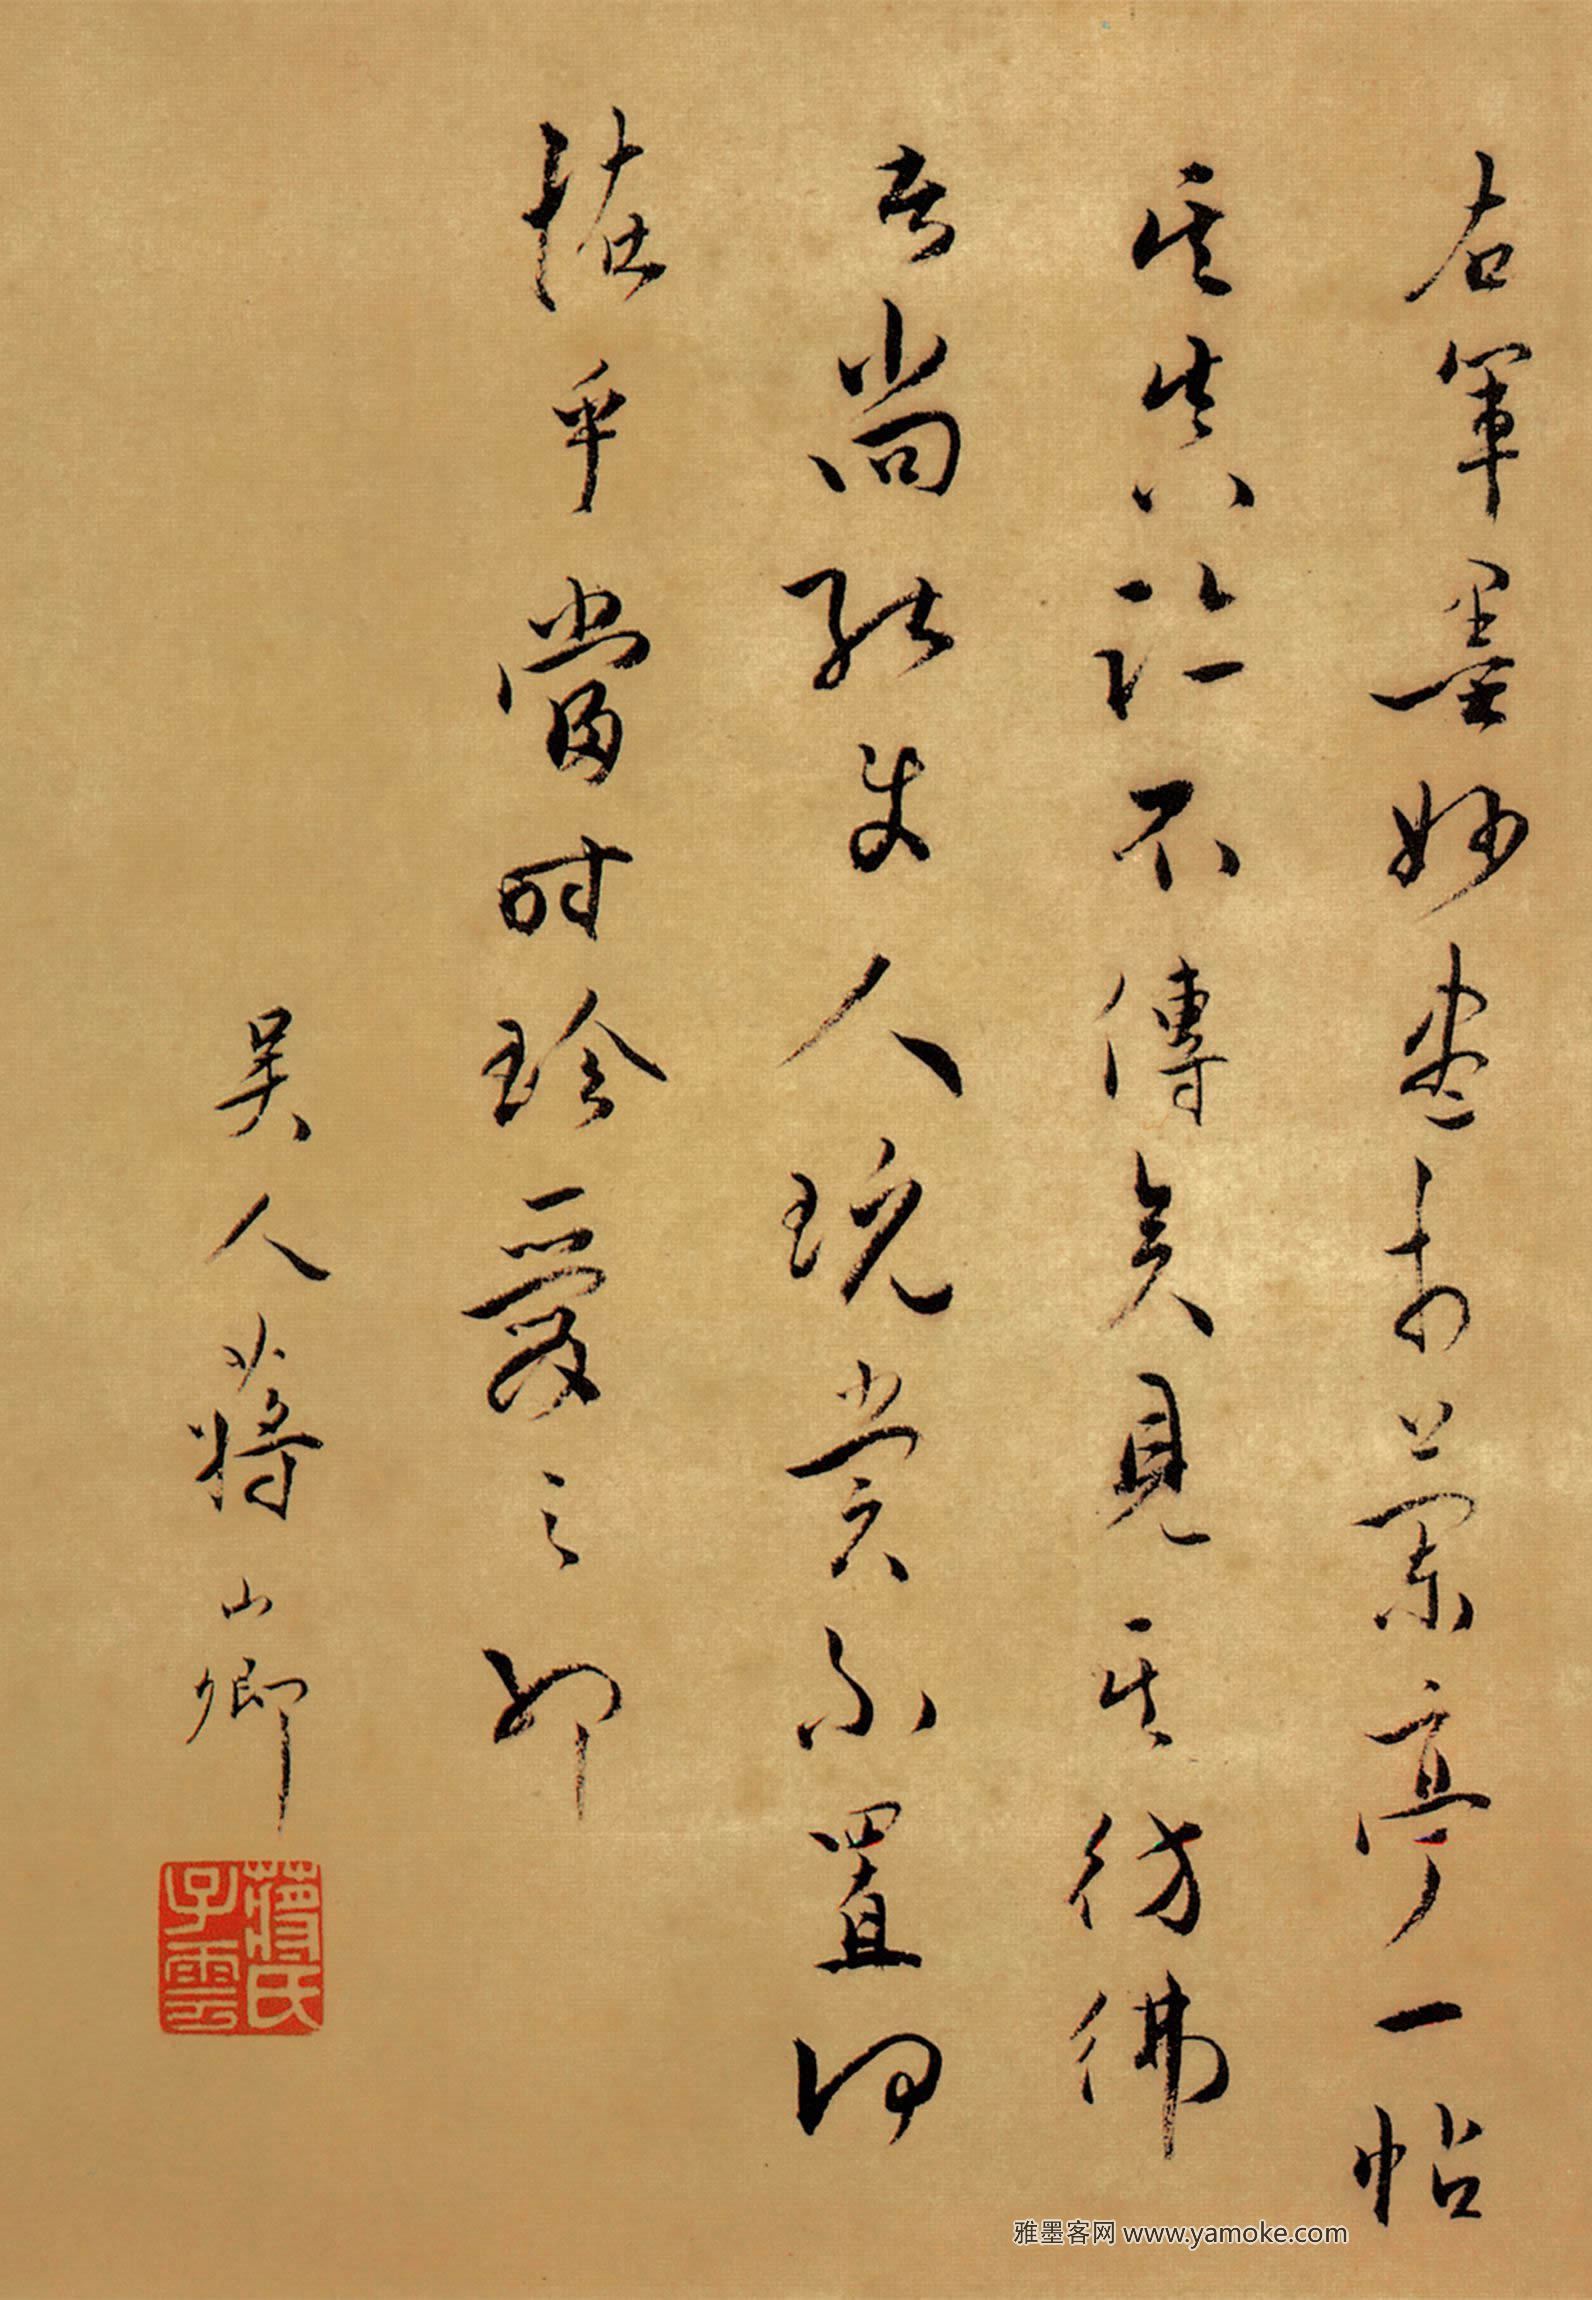 右軍墨妙盡於蘭亭一帖
其真跡不傳矣見其彷彿
者尚能使人玩賞不置何
恠乎當時珍愛之耶
吳人蔣山卿
蔣氏子雲
雅墨客网 www.yamoke.com